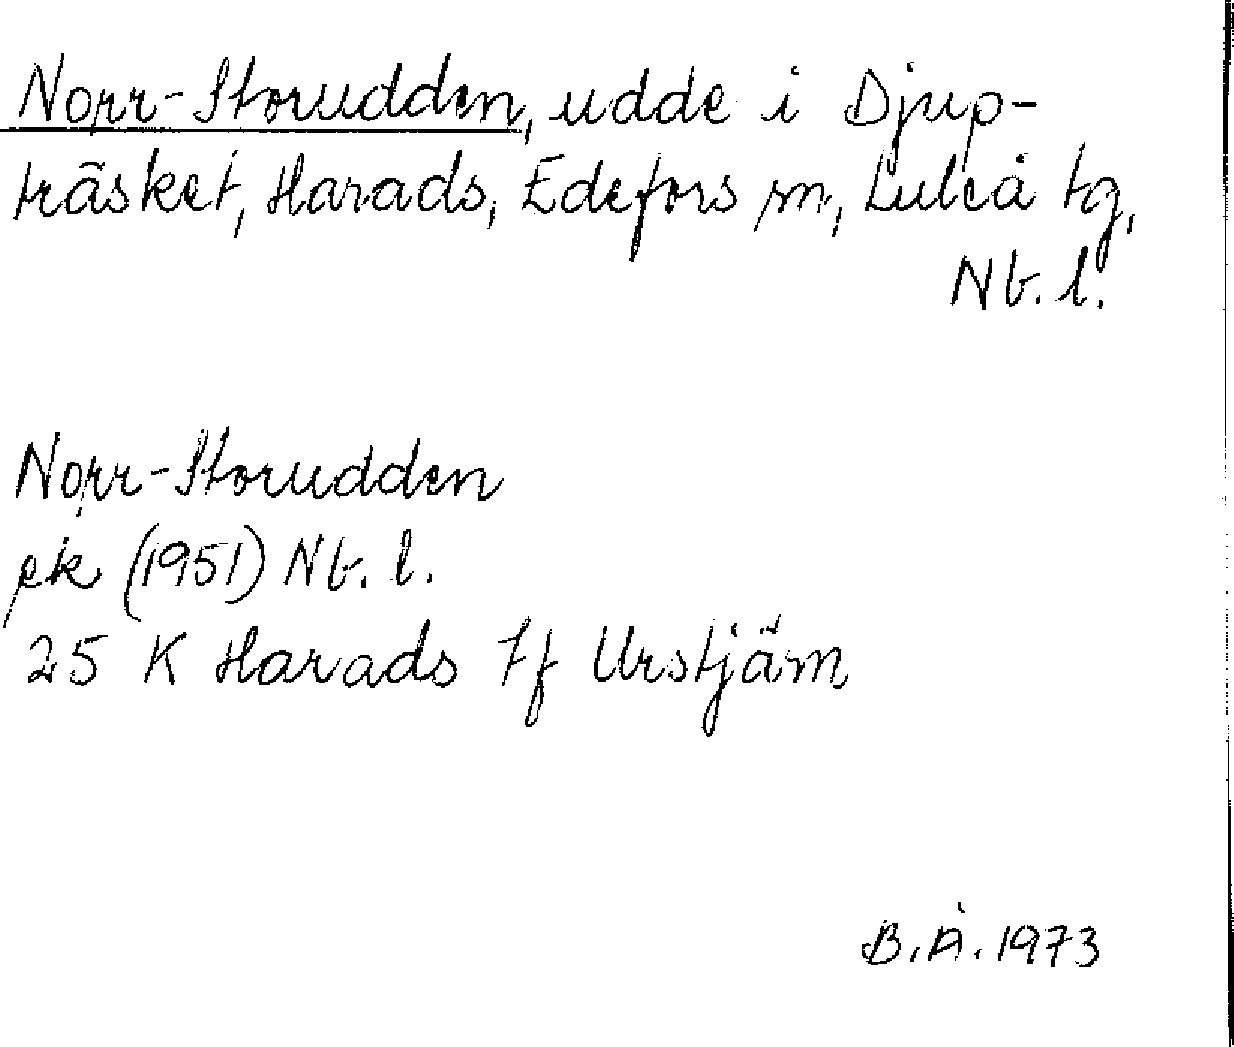 Norr-Storudden, udde i Djup-
träsket, Harads, Edefors sn, Luleå tg,
Nb. l.
Norr-Storudden
ek (1951) Nb. l.
25 K Harads 7f Urstjärn
B.Å. 1973